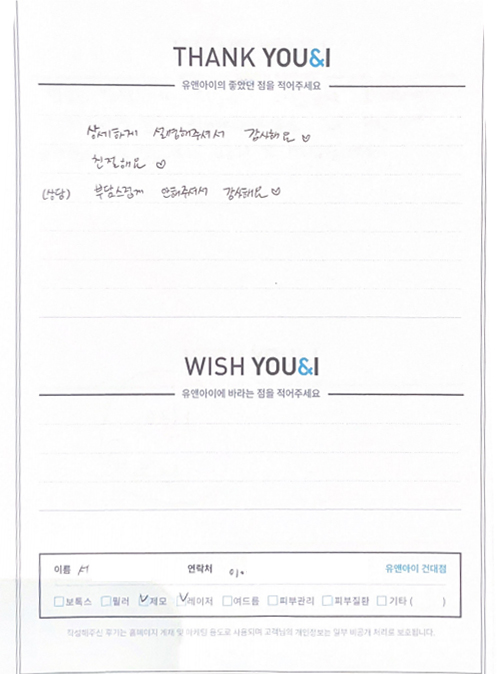 THANK YOU&I
유앤아이의 좋았던 점을 적어주세요
상세하게 설명해주셔서 감사해요 ♡
친절해요 ♡
(상담) 부담스럽게 안해주셔서 감사해요 ♡
WISH YOU&I
유앤아이에 바라는 점을 적어주세요
이름 서 연락처 01 유앤아이 건대점
보톡스 필러 제모 레이저 여드름 피부관리 피부질환 기타 ( )
작성해주신 후기는 홈페이지 게재 및 마케팅 용도로 사용되며 고객님의 개인정보는 일부 비공개 처리로 보호됩니다.